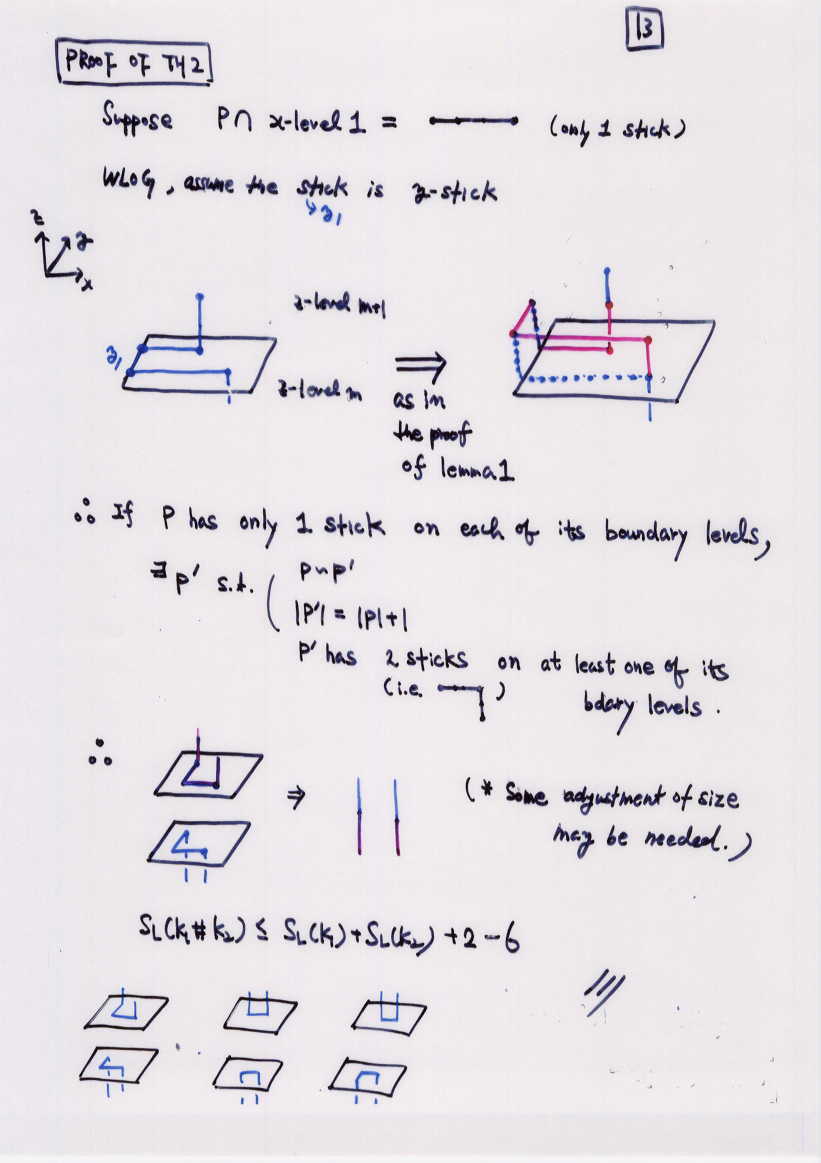 13
PROOF OF TH 2
Suppose P∩ x-level 1 = (only 1 stick)
WLOG, assume the stick is y-stick
y₁
z
y
x
z-level m+1
y₁
z-level m
⇒
as in
the proof
of lemma 1
∴ If P has only 1 stick on each of its boundary levels,
∃ P' s.t. ( P~P'
|P'| = |P|+1
P' has 2 sticks on at least one of its
(i.e. ) bdary levels.
∴ ⇒ (* Some adjustment of size
may be needed.)
S_L(K₁#K₂) ≤ S_L(K₁)+S_L(K₂)+2-6